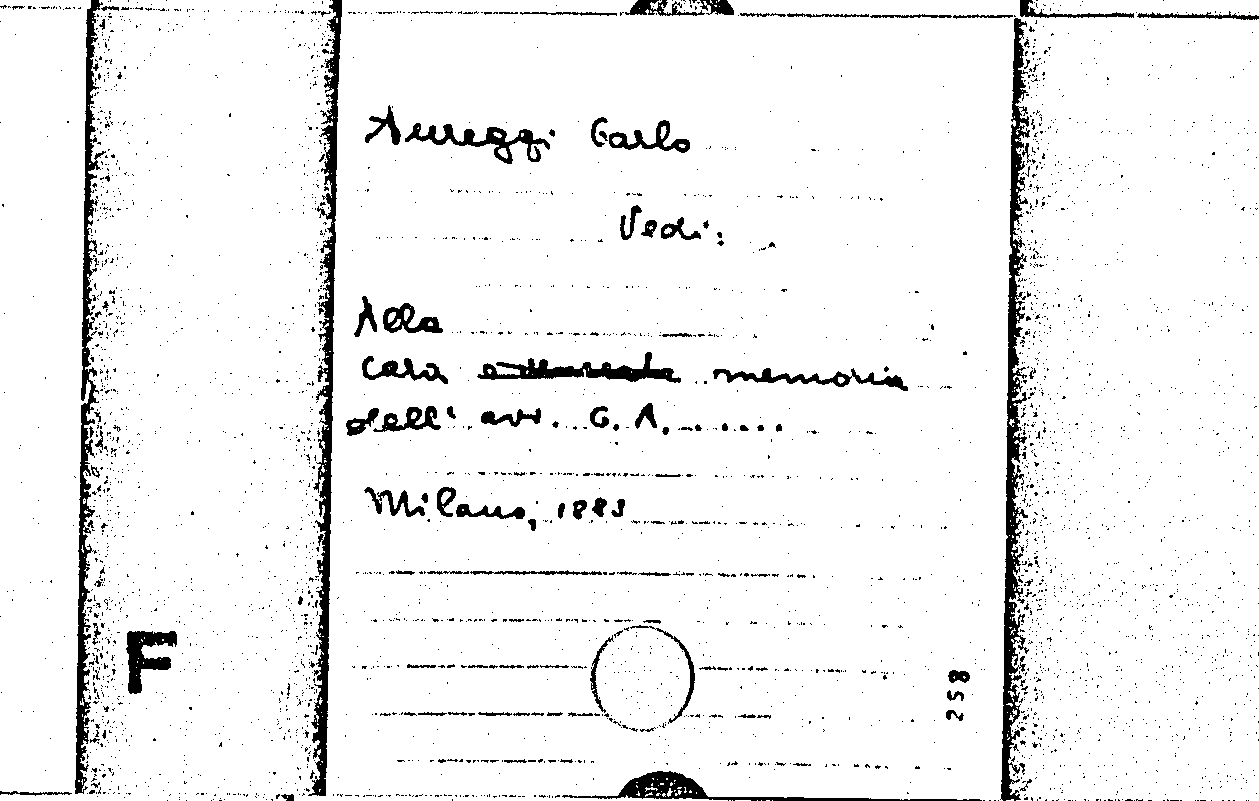 Aureggi Carlo
Vedi:
Alla
cara memoria
dell' avv. G. A. . . . . .
Milano, 1883
F
258